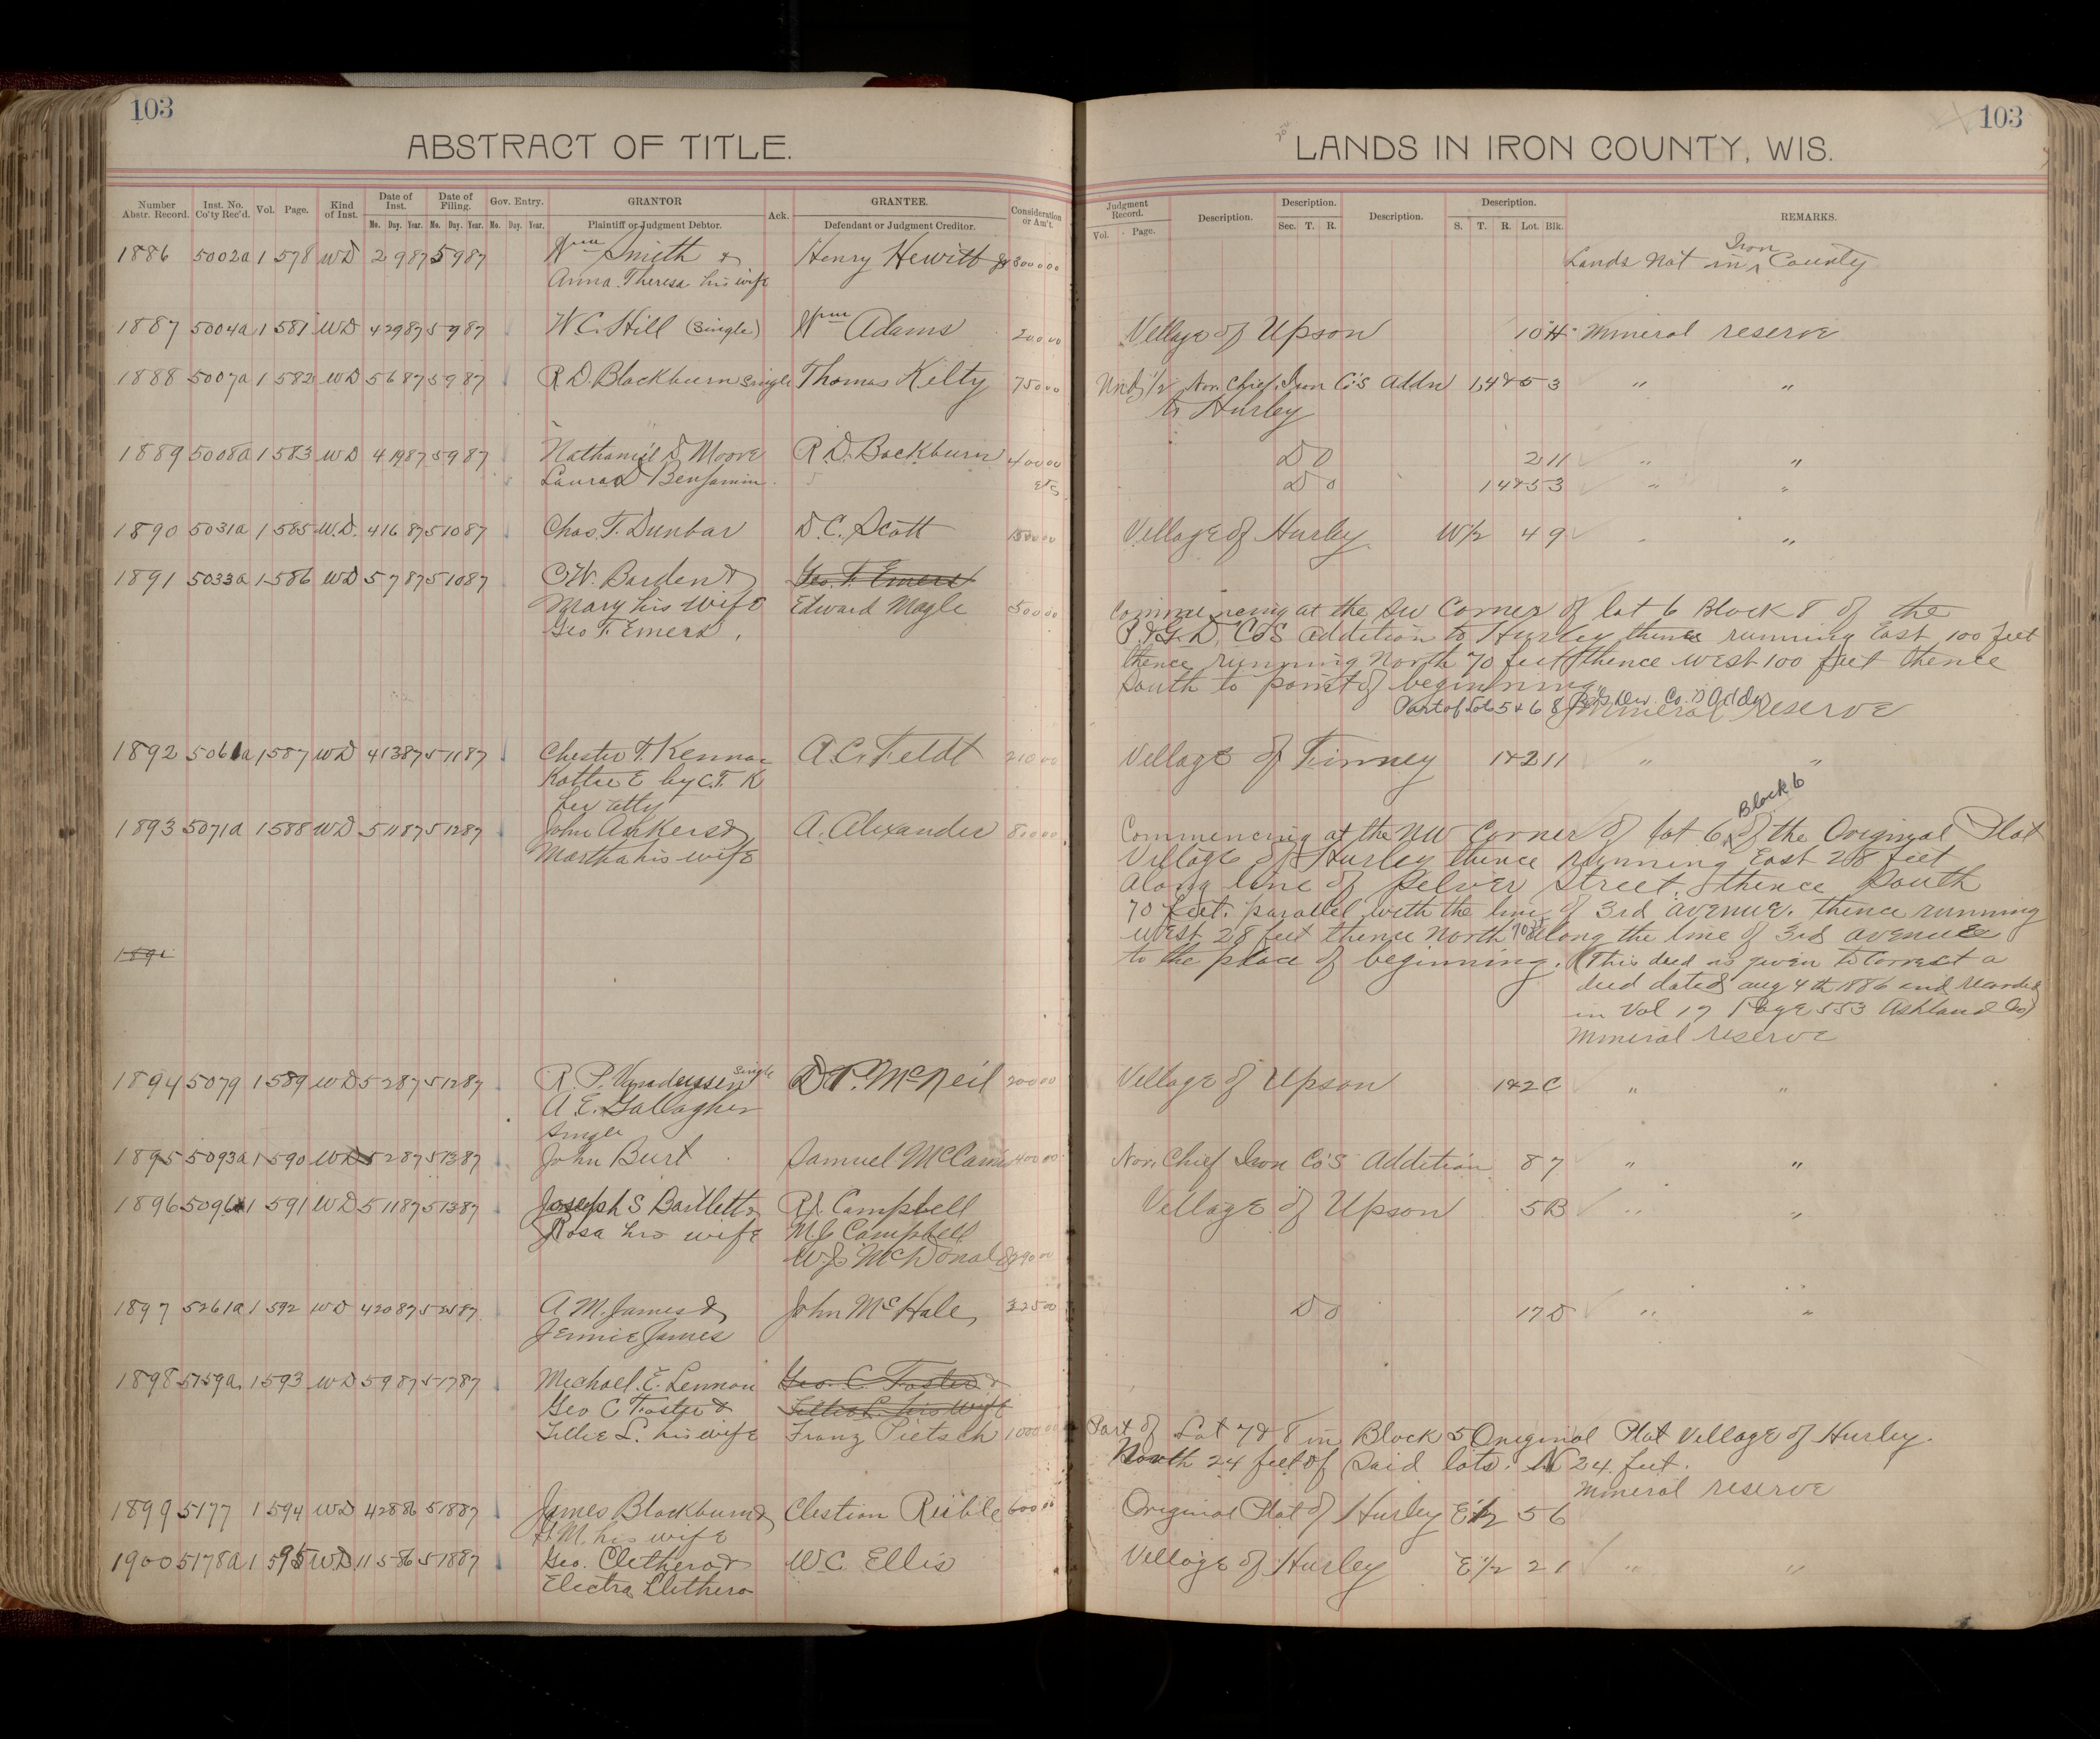 103
ABSTRACT OF TITLE.
Number Abstr. Record. Inst. No. Co'ty Rec'd. Vol. Page. Kind of Inst. Date of Inst. Mo. Day. Year. Date of Filing. Mo. Day. Year. Gov. Entry. Mo. Day. Year. GRANTOR Plaintiff or Judgment Debtor. Ack. GRANTEE. Defendant or Judgment Creditor. Consideration or Am't.
1886 5002a 1 578 WD 2 9 87 5 9 87 Wm Smith & Henry Hewitt Jr 3000 00
Anna Theresa his wife
1887 5004a 1 581 WD 4 29 87 5 9 87 W.C. Hill (Single) Wm Adams 200 00
1888 5007a 1 582 WD 5 6 87 5 9 87 R.D. Blackburn Single Thomas Kelty 750 00
1889 5008a 1 583 WD 4 19 87 5 9 87 Nathaniel D Moore R.D. Backburn 400 00
Laura D Benjamin
1890 5031a 1 585 W.D. 4 16 87 5 10 87 Chas. T. Dunbar D.C. Scott
1891 5033a 1 586 WD 5 7 87 5 10 87 C.W. Barden & Geo. T. Emers
Mary his wife Edward Nagle 500 00
Geo T. Emers.
1892 5061a 1 587 WD 4 13 87 5 11 87 Chester T. Kennan A.C. Feldt 210 00
Kattie E by C.T. K
her atty
1893 5071a 1 588 WD 5 11 87 5 12 87 John Ankers & A. Alexander
Martha his wife
1894 5079 1 589 WD 5 2 87 5 12 87 R.P. Single D.P. McNeil 200 00
A.E. Gallagher
Single
1895 5093a 1 590 WD 5 2 87 5 13 87 John Burt Samuel 400 00
1896 5096 1 591 WD 5 11 87 5 13 87 Joseph S Bartlett & R.J. Campbell
Rosa his wife M.J. Campbell
W.J. McDonald 290 00
1897 5261a 1 592 WD 4 20 87 5 25 87 A M. James & John McHale 225 00
Jennie James
1898 5159a 1 593 WD 5 9 87 5 17 87 Michael. E. Lennon Geo. C. Foster &
Geo C Foster & Lillie L. his wife
Lillie L. his wife Franz Pietsch 1000 00
1899 5177 1 594 WD 4 28 86 5 18 87 James Blackburn & Clestion 600 00
H.M. his wife
1900 5178a 1 595 W.D. 11 5 86 5 18 87 Geo. Clethero & W.C. Ellis
Electra Clethero
103
LANDS IN IRON COUNTY, WIS.
Judgment Record. Vol. Page. Description. Description. Sec. T. R. Description. Description. S. T. R. Lot. Blk. REMARKS.
Lands Not in Iron County
Village of Upson 10 H Mineral reserve
Und 1/2 Nor. Chief. Iron Co's Addn 1, 4 & 5 3 " "
to Hurley
Do 2 11 " "
Do 1 4 & 5 3 " "
Village of Hurley W1/2 4 9 " "
Commencing at the SW Corner of lot 6 Block 8 of the
P. & G. D. Co's Addition to Hurley thence running East 100 feet
thence running North 70 feet thence west 100 feet thence
South to point of beginning.
Part of Lots 5 & 6 8 Dev. Co.'s Addn
Mineral reserve
Village of Finney 1 & 2 11 " "
Block 6
Commencing at the NW Corner of lot 6 of the Original Plat
Village of Hurley thence running East 28 feet
along line of Selver Street. thence South
70 feet. parallel with the line of 3rd avenue. thence running
west 28 feet thence North 70 ft along the line of 3rd avenue
to the place of beginning. (This deed is given to Correct a
deed dated Aug 4th 1886 and recorded
in Vol 17 Page 553 Ashland Co)
Mineral reserve
Village of Upson 1 & 2 C " "
Nor. Chief Iron Co's Addition 8 7 " "
Village of Upson 5 B " "
Do 17 D " "
Part of Lot 7 & 8 in Block 5 Original Plat Village of Hurley.
North 24 feet of Said lots. N 24 feet.
Mineral reserve
Original Plat of Hurley E 1/2 5 6
Village of Hurley E 1/2 2 1 " "